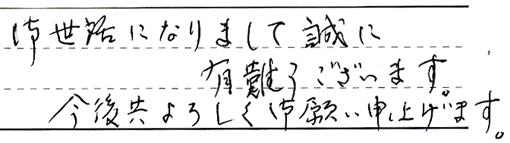 御世話になりまして誠に
有難うございます。
今後共よろしく御願い申上げます。